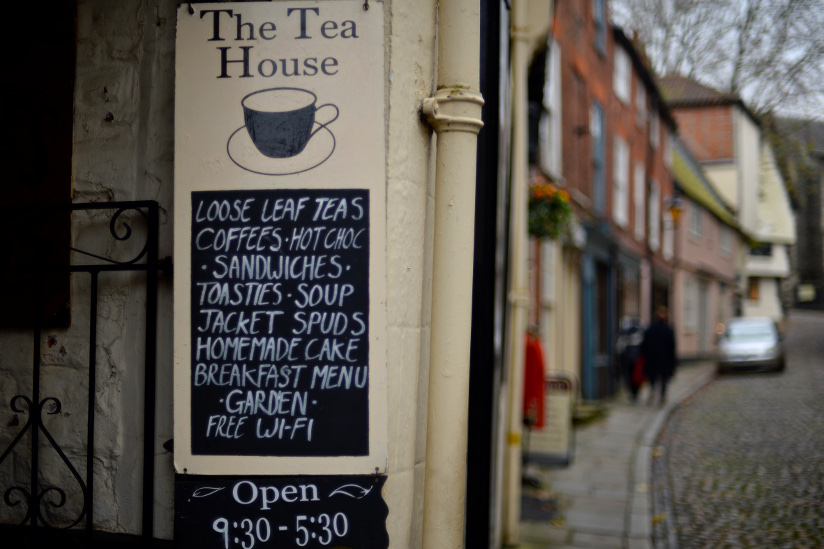 The Tea
House
LOOSE LEAF TEAS
COFFEES · HOT CHOC
· SANDWICHES ·
TOASTIES · SOUP
JACKET SPUDS
HOMEMADE CAKE
BREAKFAST MENU
· GARDEN ·
FREE WI-FI
Open
9:30 - 5:30